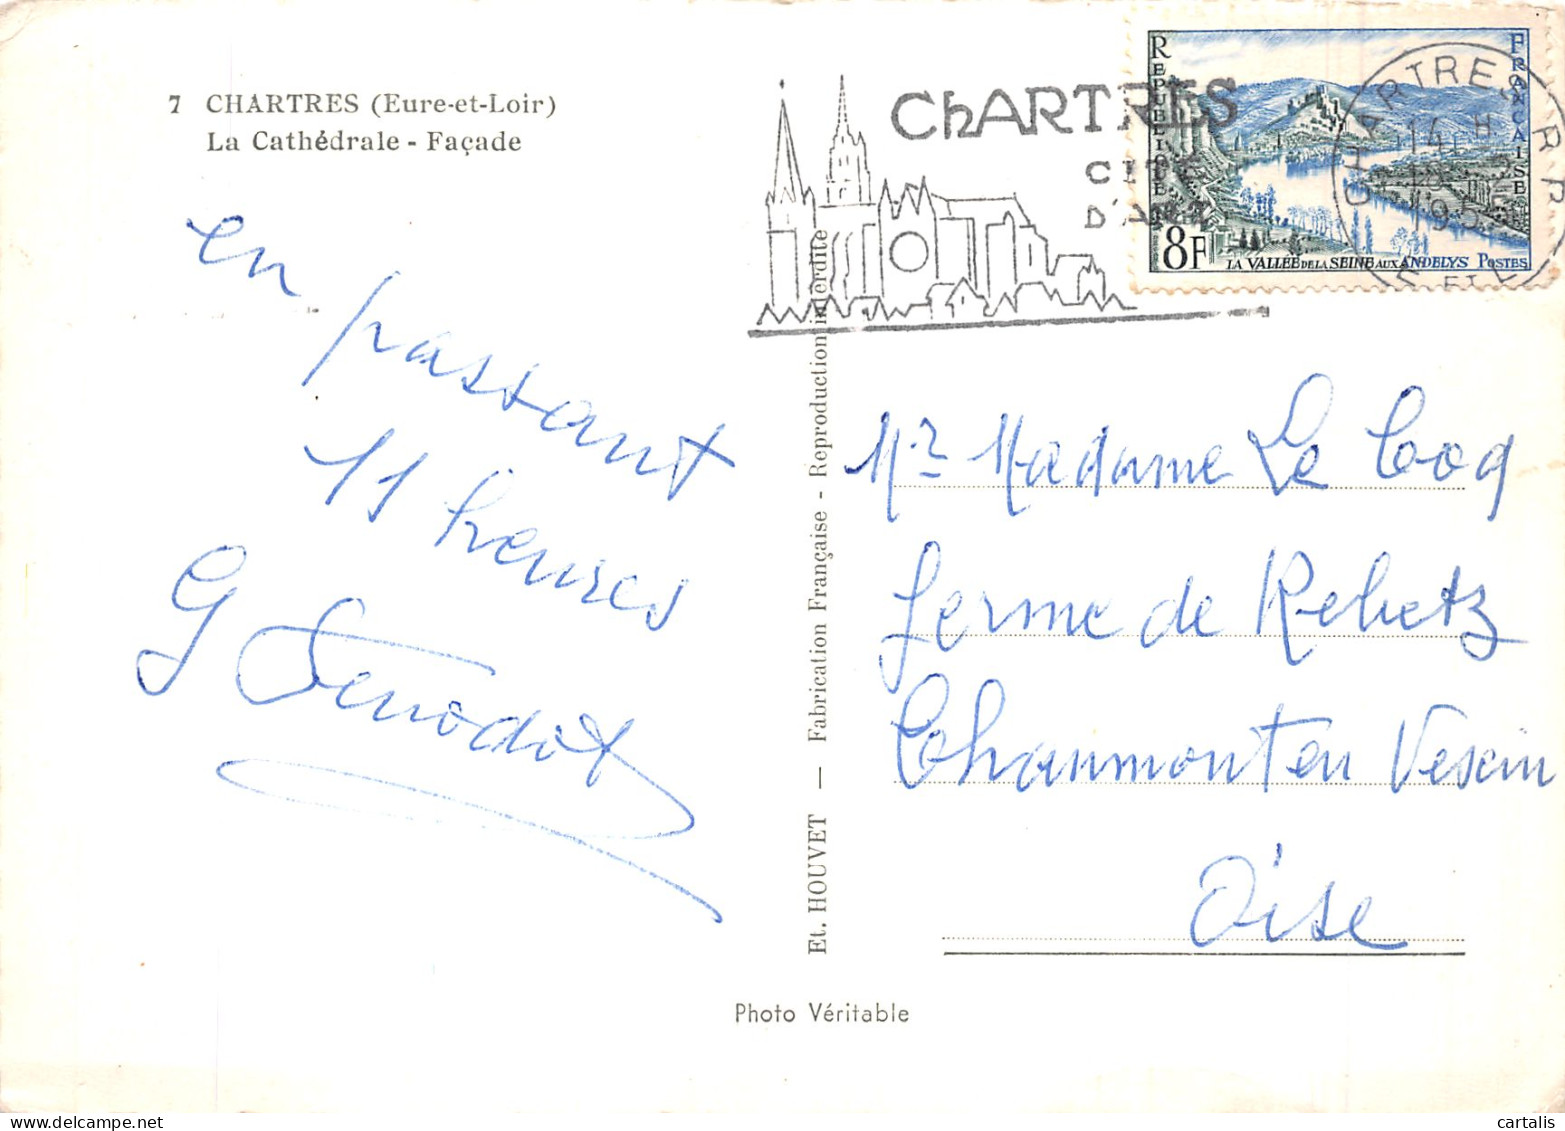 7 CHARTRES (Eure-et-Loir)
La Cathédrale - Façade
en passant
11 heures
G Fenodot
Et. HOUVET — Fabrication Française - Reproduction interdite
Photo Véritable
ChARTRES
CITÉ
D'ART
REPUBLIQUE FRANÇAISE
8F
LA VALLÉE DE LA SEINE AUX ANDELYS POSTES
CHARTRES R.P.
14 H
EURE ET L
Mr Madame Le Cocq
ferme de Rebetz
Chaumont en Vexin
Oise
cartalis